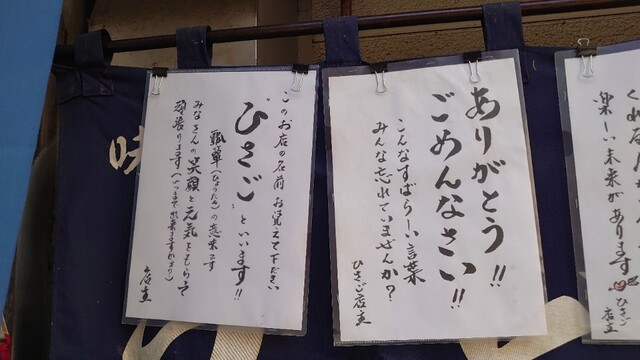 くれる
楽しい未来があります
ひさご
店主
ありがとう!!
ごめんなさい!!
こんなすばらしい言葉
みんな忘れていませんか?
ひさご店主
このお店の名前お覚えて下さい
ひさご といいます!!
瓢箪(ひょうたん)の意味です
みなさんの笑顔と元気をもらって
頑張ります
店主
味